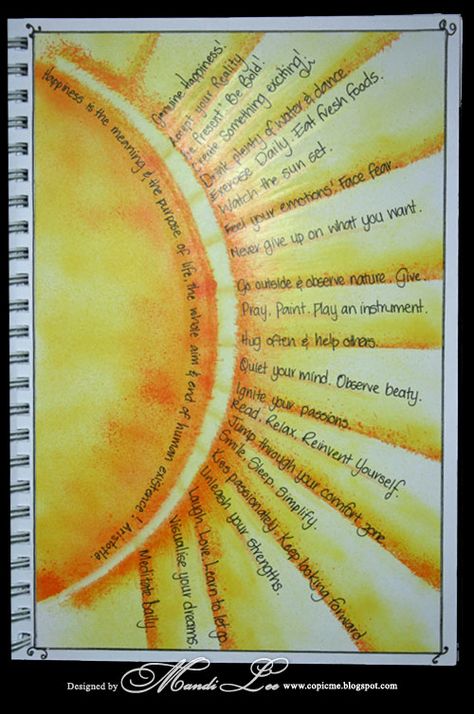 Happiness is the meaning & the purpose of life, the whole aim & end of human existence! Aristotle
Genuine Happiness!
Accept your Reality
Be Present! Be Bold!
Create Something exciting!
Drink plenty of water & dance.
Exercise Daily. Eat fresh foods.
Watch the sun set.
Feel your emotions! Face fear.
Never give up on what you want.
Go outside & observe nature. Give.
Pray. Paint. Play an instrument.
Hug often & help others.
Quiet your mind. Observe beaty.
Ignite your passions.
Read. Relax. Reinvent Yourself.
Jump through your comfort zone.
Smile. Sleep. Simplify.
Kiss passionately. Keep looking forward.
Unleash your strengths.
Laugh. Love. Learn to let go
Visualise your dreams.
Meditate Daily
Designed by Mandi Lee www.copicme.blogspot.com